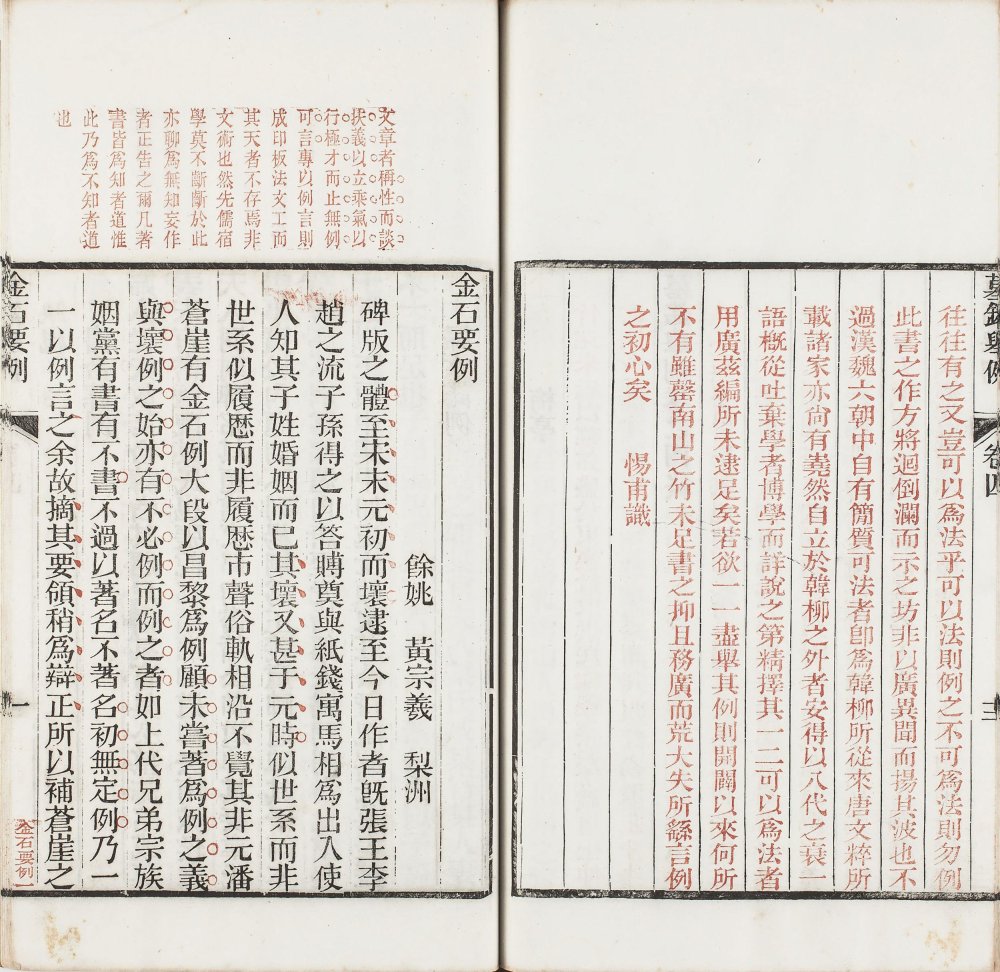 墓銘舉例
卷四
十二
往往有之又豈可以為法乎可以法則例之不可為法則勿例
此書之作方將迴倒瀾而示之坊非以廣異聞而揚其波也不
過漢魏六朝中自有簡質可法者卽為韓柳所從來唐文粹所
載諸家亦尚有嶤然自立於韓柳之外者安得以八代之衰一
語概從吐棄學者博學而詳說之第精擇其一二可以為法者
用廣茲編所未逮足矣若欲一一盡舉其例則開闢以來何所
不有雖罄南山之竹未足書之抑且務廣而荒大失所繇言例
之初心矣　惕甫識
文章者稱性而談
扶義以立乘氣以
行極才而止無例
可言專以例言則
成印板法文工而
其天者不存焉非
文術也然先儒宿
學莫不斷斷於此
亦聊為無知妄作
者正告之爾凡著
書皆為知者道惟
此乃為不知者道
也
金石要例
餘姚　黃宗羲　梨洲
碑版之體至宋末元初而壞逮至今日作者旣張王李
趙之流子孫得之以答賻奠與紙錢寓馬相為出入使
人知其子姓婚姻而已其壞又甚于元時似世系而非
世系似履歷而非履歷市聲俗軌相沿不覺其非元潘
蒼崖有金石例大段以昌黎為例顧未嘗著為例之義
與壞例之始亦有不必例而例之者如上代兄弟宗族
姻黨有書有不書不過以著名不著名初無定例乃一
一以例言之余故摘其要領稍為辯正所以補蒼崖之
金石要例
一
金石要例一